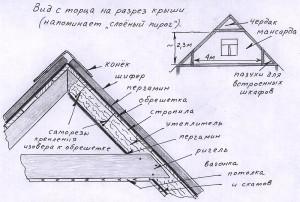 Вид с торца на разрез крыши
(напоминает "слоёный пирог").
чердак
мансарда
~ 2,3м
4м
пазухи для
встроенных
шкафов
конёк
шифер
пергамин
обрешетка
стропила
утеплитель
пергамин
ригель
вагонка
потолка
и скатов
саморезы
крепления
изовера к обрешетке